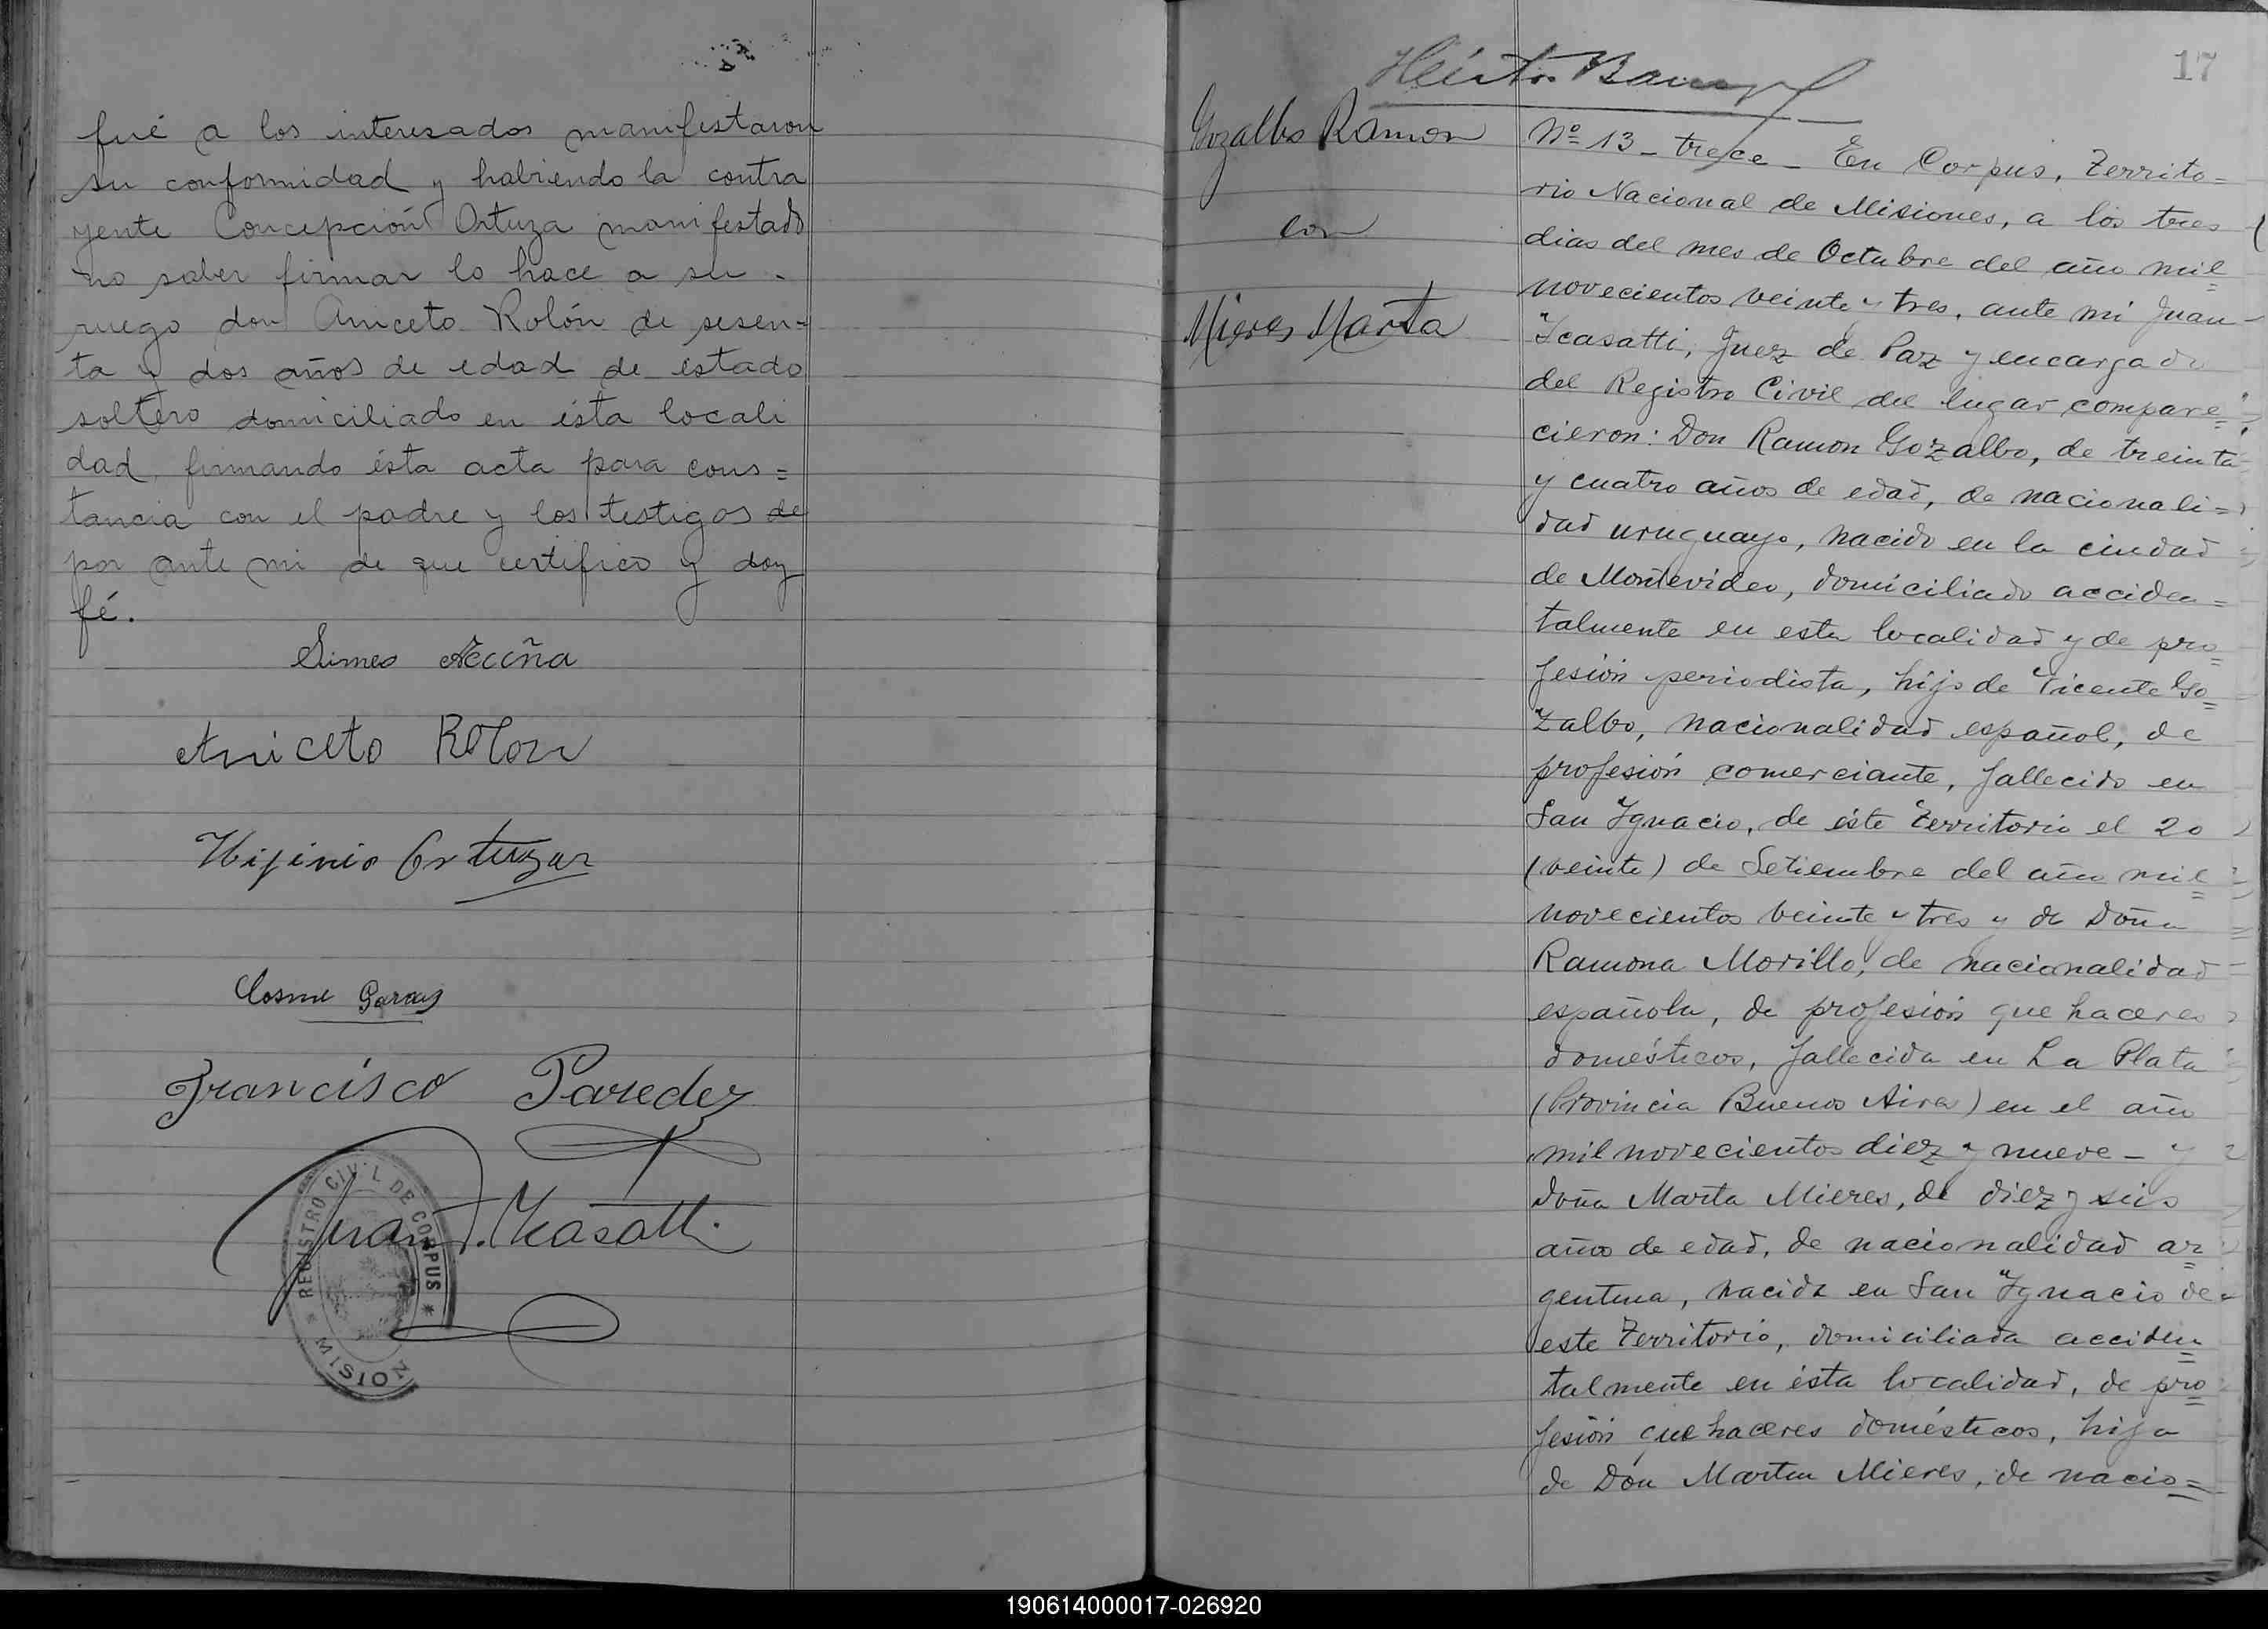 fué a los interesados manifestaron
su conformidad y habiendo la contra
yente Concepción Ortuza manifestado
no saber firmar lo hace a su -
ruego don Aniceto Rolón de sesen-
ta y dos años de edad de estado
soltero domiciliado en ésta locali
dad, firmando ésta acta para cons=
tancia con el padre y los testigos de
por ante mi de que certifico y doy
fé.
Acuña
Aniceto Rolon
Higinio Ortuzar
Cosme
Francisco Paredez
Juan J. Icasatti
REGISTRO CIVIL DE CORPUS
MISION
17
Héctor
Gozalbo Ramon
con
Mieres Marta
Nº 13 - trece - En Corpus, Territo=
rio Nacional de Misiones, a los tres
dias del mes de Octubre del año mil
novecientos veinte y tres, ante mi Juan
Icasatti, Juez de Paz y encargado
del Registro Civil del lugar compare=
cieron: Don Ramon Gozalbo, de treinta
y cuatro años de edad, de nacionali=
dad uruguayo, nacido en la ciudad
de Montevideo, domiciliado acciden=
talmente en esta localidad y de pro=
fesión periodista, hijo de Vicente Go=
zalbo, nacionalidad español, de
profesión comerciante, fallecido en
San Ignacio, de éste Territorio el 20
(veinte) de Setiembre del año mil
novecientos veinte y tres y de Doña
Ramona Morillo, de nacionalidad
española, de profesión que haceres
domésticos, fallecida en La Plata
(Provincia Buenos Aires) en el año
mil novecientos diez y nueve - y
doña Marta Mieres, de diez y seis
años de edad, de nacionalidad ar=
gentina, nacida en San Ignacio de
este Territorio, domiciliada acciden=
talmente en ésta localidad, de pro=
fesión que haceres domésticos, hija
de Dón Martin Mieres, de nacio=
190614000017-026920